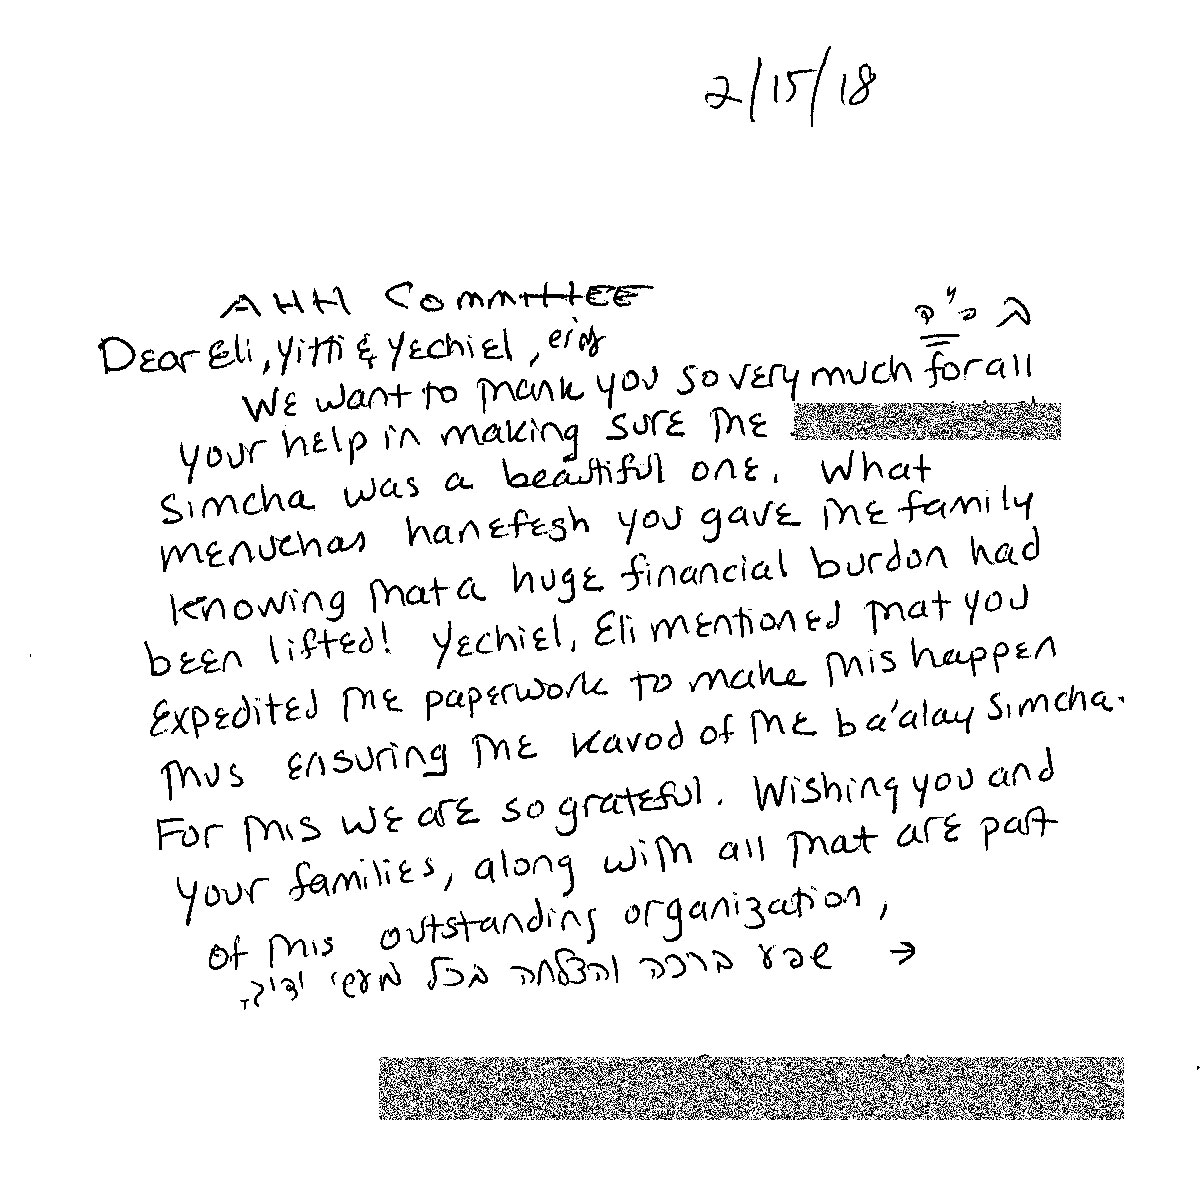 2/15/18
AHH Committee
Dear Eli, Yitti & Yechiel,
We want to thank you so very much for all
your help in making sure the
simcha was a beautiful one. What
menuchas hanefesh you gave the family
knowing that a huge financial burdon had
been lifted! Yechiel, Eli mentioned that you
expedited the paperwork to make this happen
thus ensuring the kavod of the ba'alay simcha.
For this we are so grateful. Wishing you and
your families, along with all that are part
of this outstanding organization,
→ שפע ברכה והצלחה בכל מעשי ידיך.